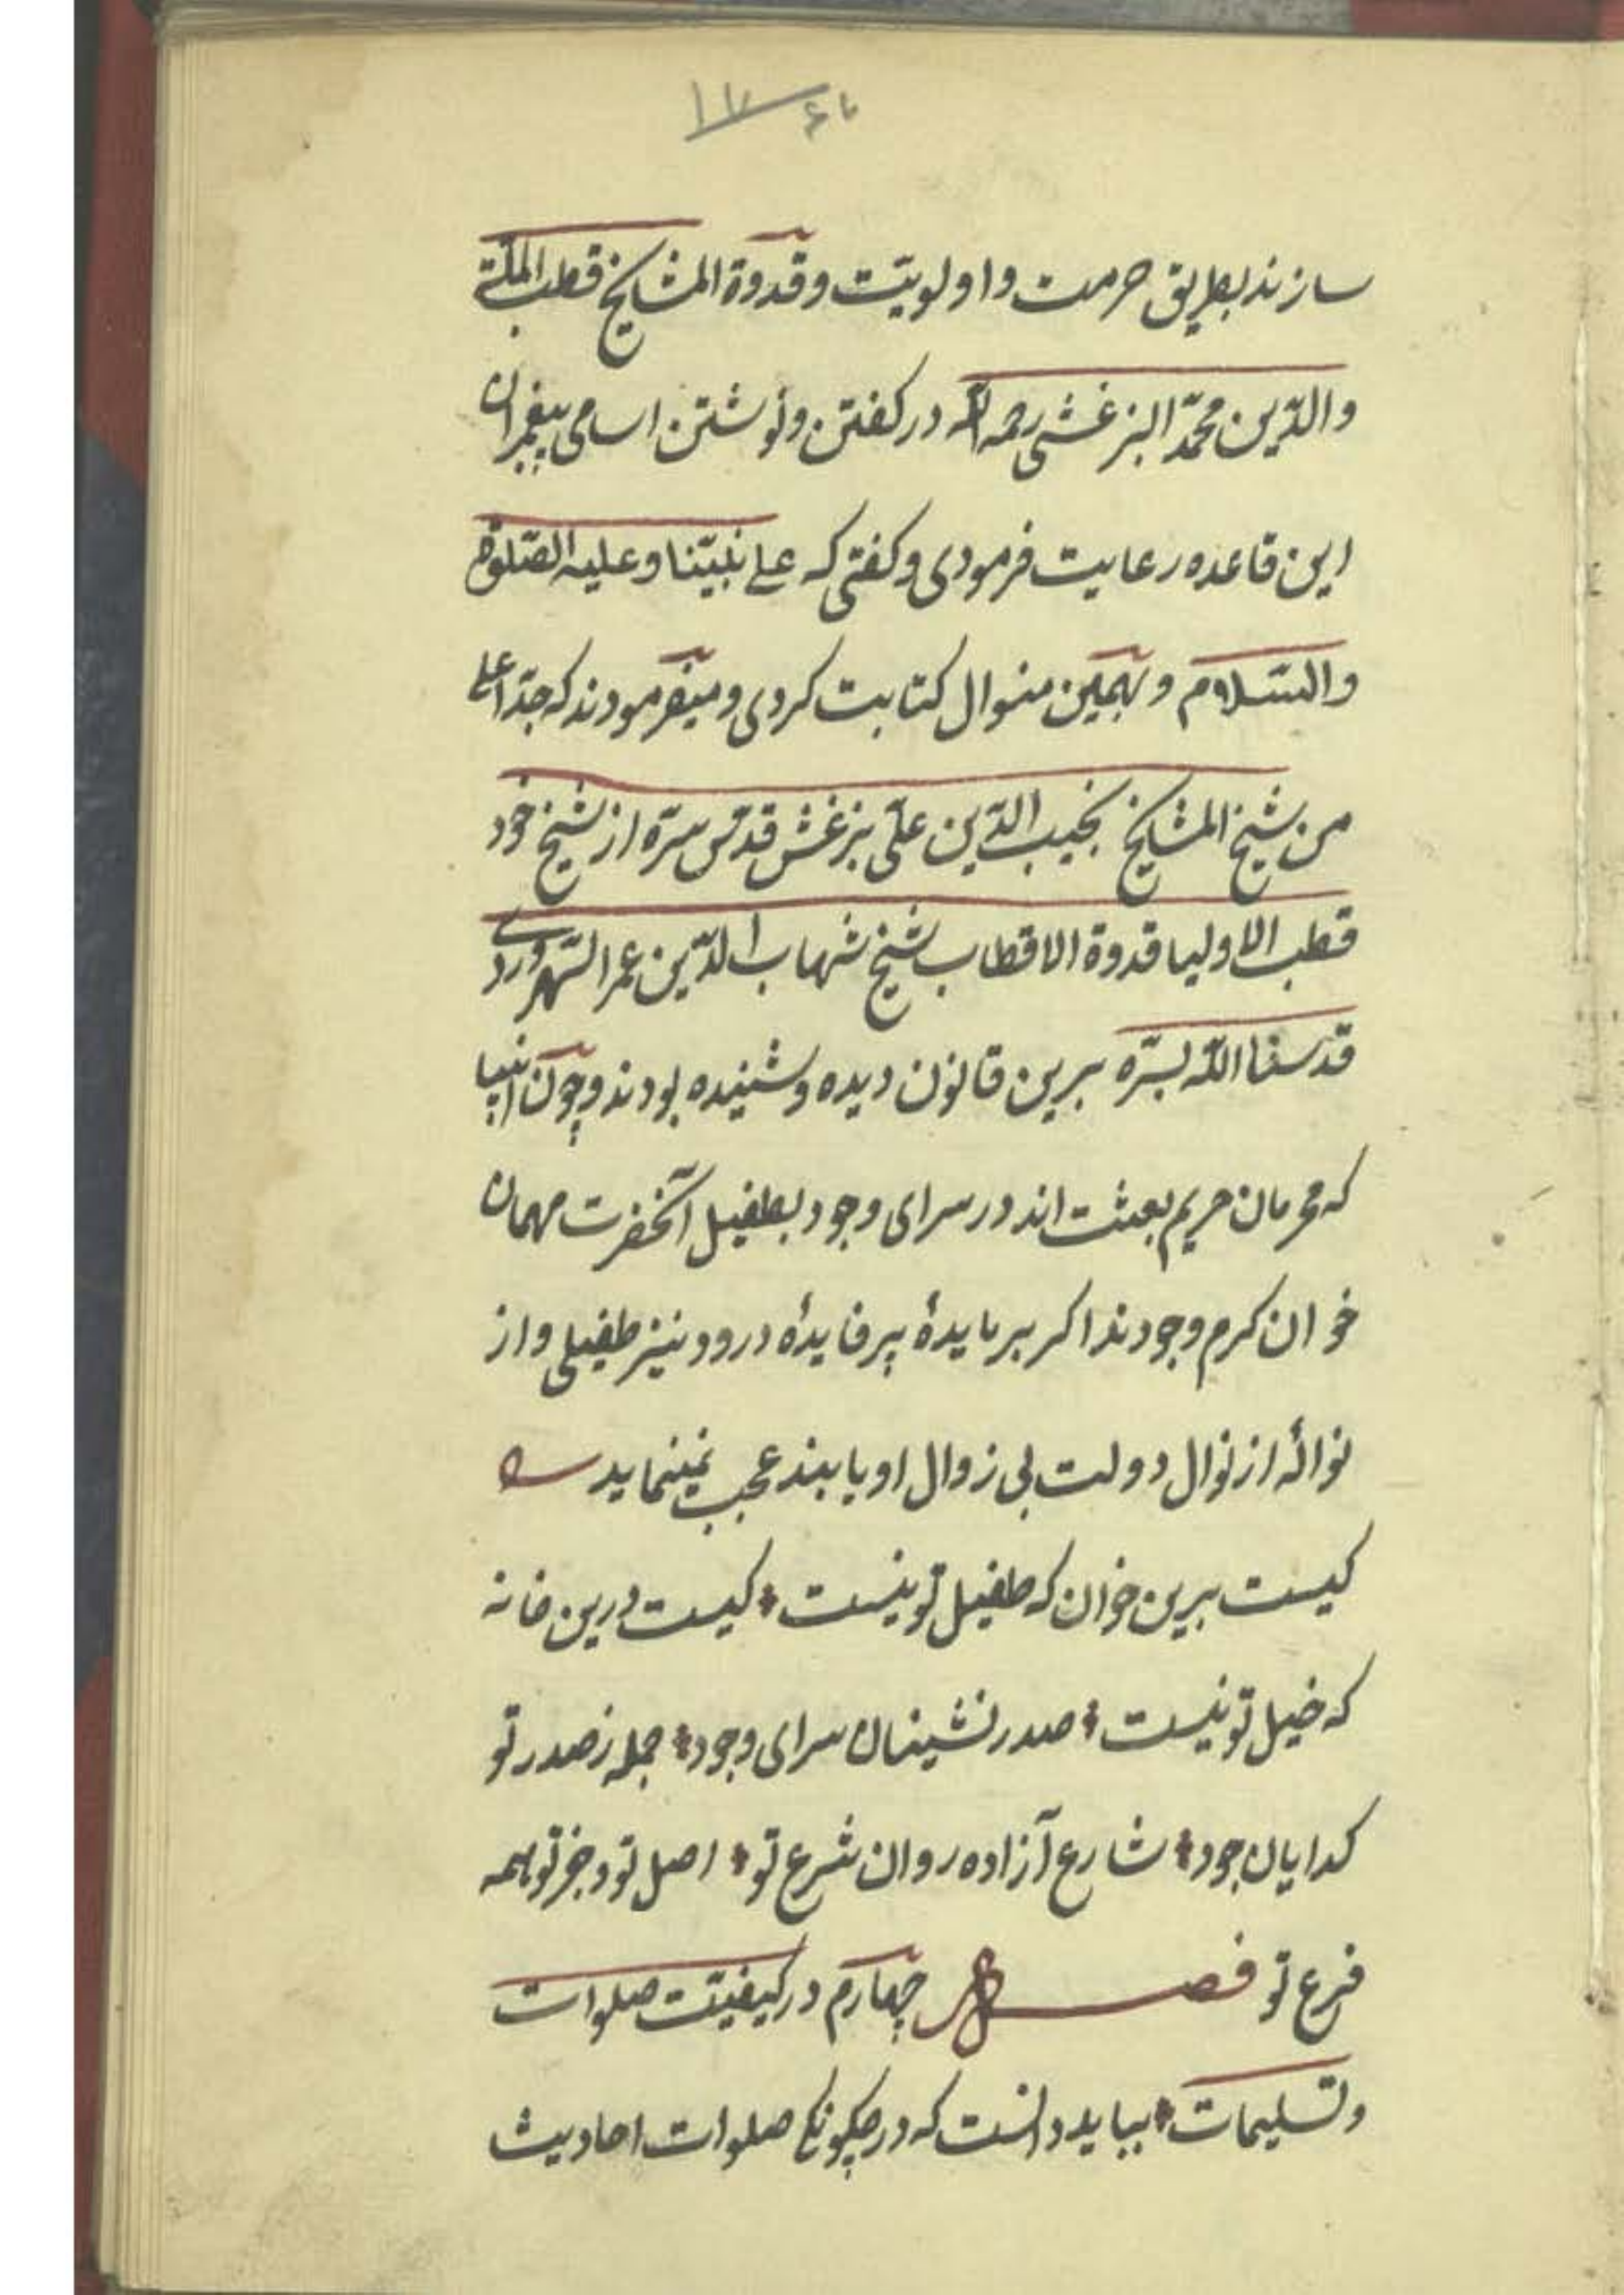 سازند بطریق حرمت و اولویّت و قدوة المشایخ قطب الملّة
والدّین محمّد البزغشی رحمه الله در کفتن و نوشتن اسامی پیغمبران
این قاعده رعایت فرمودی و کفتی که علی نبیّنا و علیه الصّلوة
والسّلام و بهمین منوال کتابت کردی و میفرمودند که جدّ اعلی
من شیخ المشایخ نجیب الدّین علّی بزغش قدّس سرّه از شیخ خود
قطب الاولیا قدوة الاقطاب شیخ شهاب الدّین عمر السّهروردی
قدّسنا اللّه بسرّه برین قانون دیده و شنیده بودند و چون انبیا
که محرمان حریم بعثت اند در سرای وجود بطفیل آنحضرت مهمان
خوان کرم وجودند اکر بر مایدهٔ پر فایدهٔ درود نیز طفیلی و از
نوالهٔ از نوال دولت بی زوال او یابند عجب نمینماید
کیست برین خوان که طفیل تو نیست * کیست درین خانه
که خیل تو نیست * صدر نشینان سرای وجود * جمله ز صدر تو
کدایان جود * شارع آزاده روان شرع تو * اصل تو و جز تو همه
فرع تو فصل چهارم در کیفیّت صلوات
و تسلیمات * بباید دانست که در چکونکی صلوات احادیث